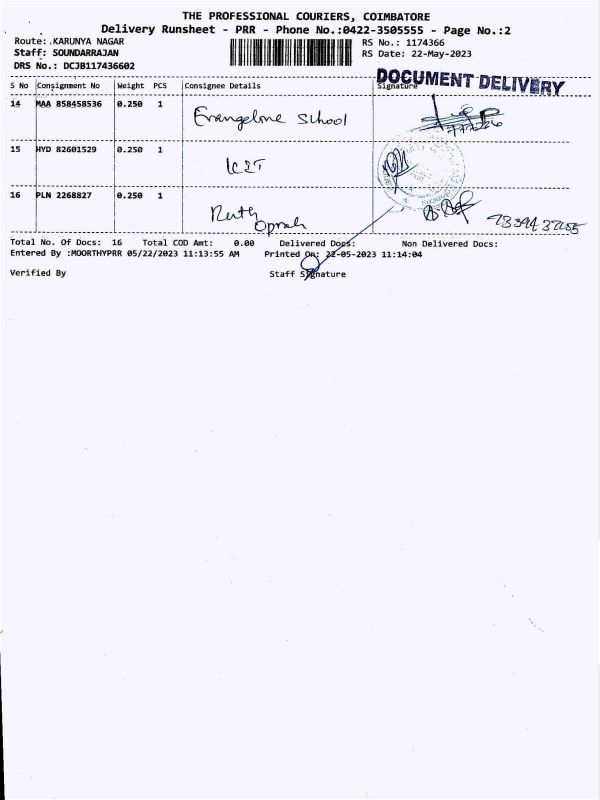 THE PROFESSIONAL COURIERS, COIMBATORE
Delivery Runsheet - PRR - Phone No.:0422-3505555 - Page No.:2
Route: KARUNYA NAGAR RS No.: 1174366
Staff: SOUNDARRAJAN RS Date: 22-May-2023
DRS No.: DCJB117436602
DOCUMENT DELIVERY
S No Consignment No Weight PCS Consignee Details Signature
14 MAA 858458536 0.250 1
Evangeline School
15 HYD 82601529 0.250 1
ICIT
16 PLN 2268827 0.250 1
Ruth
Oprah
Total No. Of Docs: 16 Total COD Amt: 0.00 Delivered Docs: Non Delivered Docs:
Entered By :MOORTHYPRR 05/22/2023 11:13:55 AM Printed On: 22-05-2023 11:14:04
Verified By Staff Signature